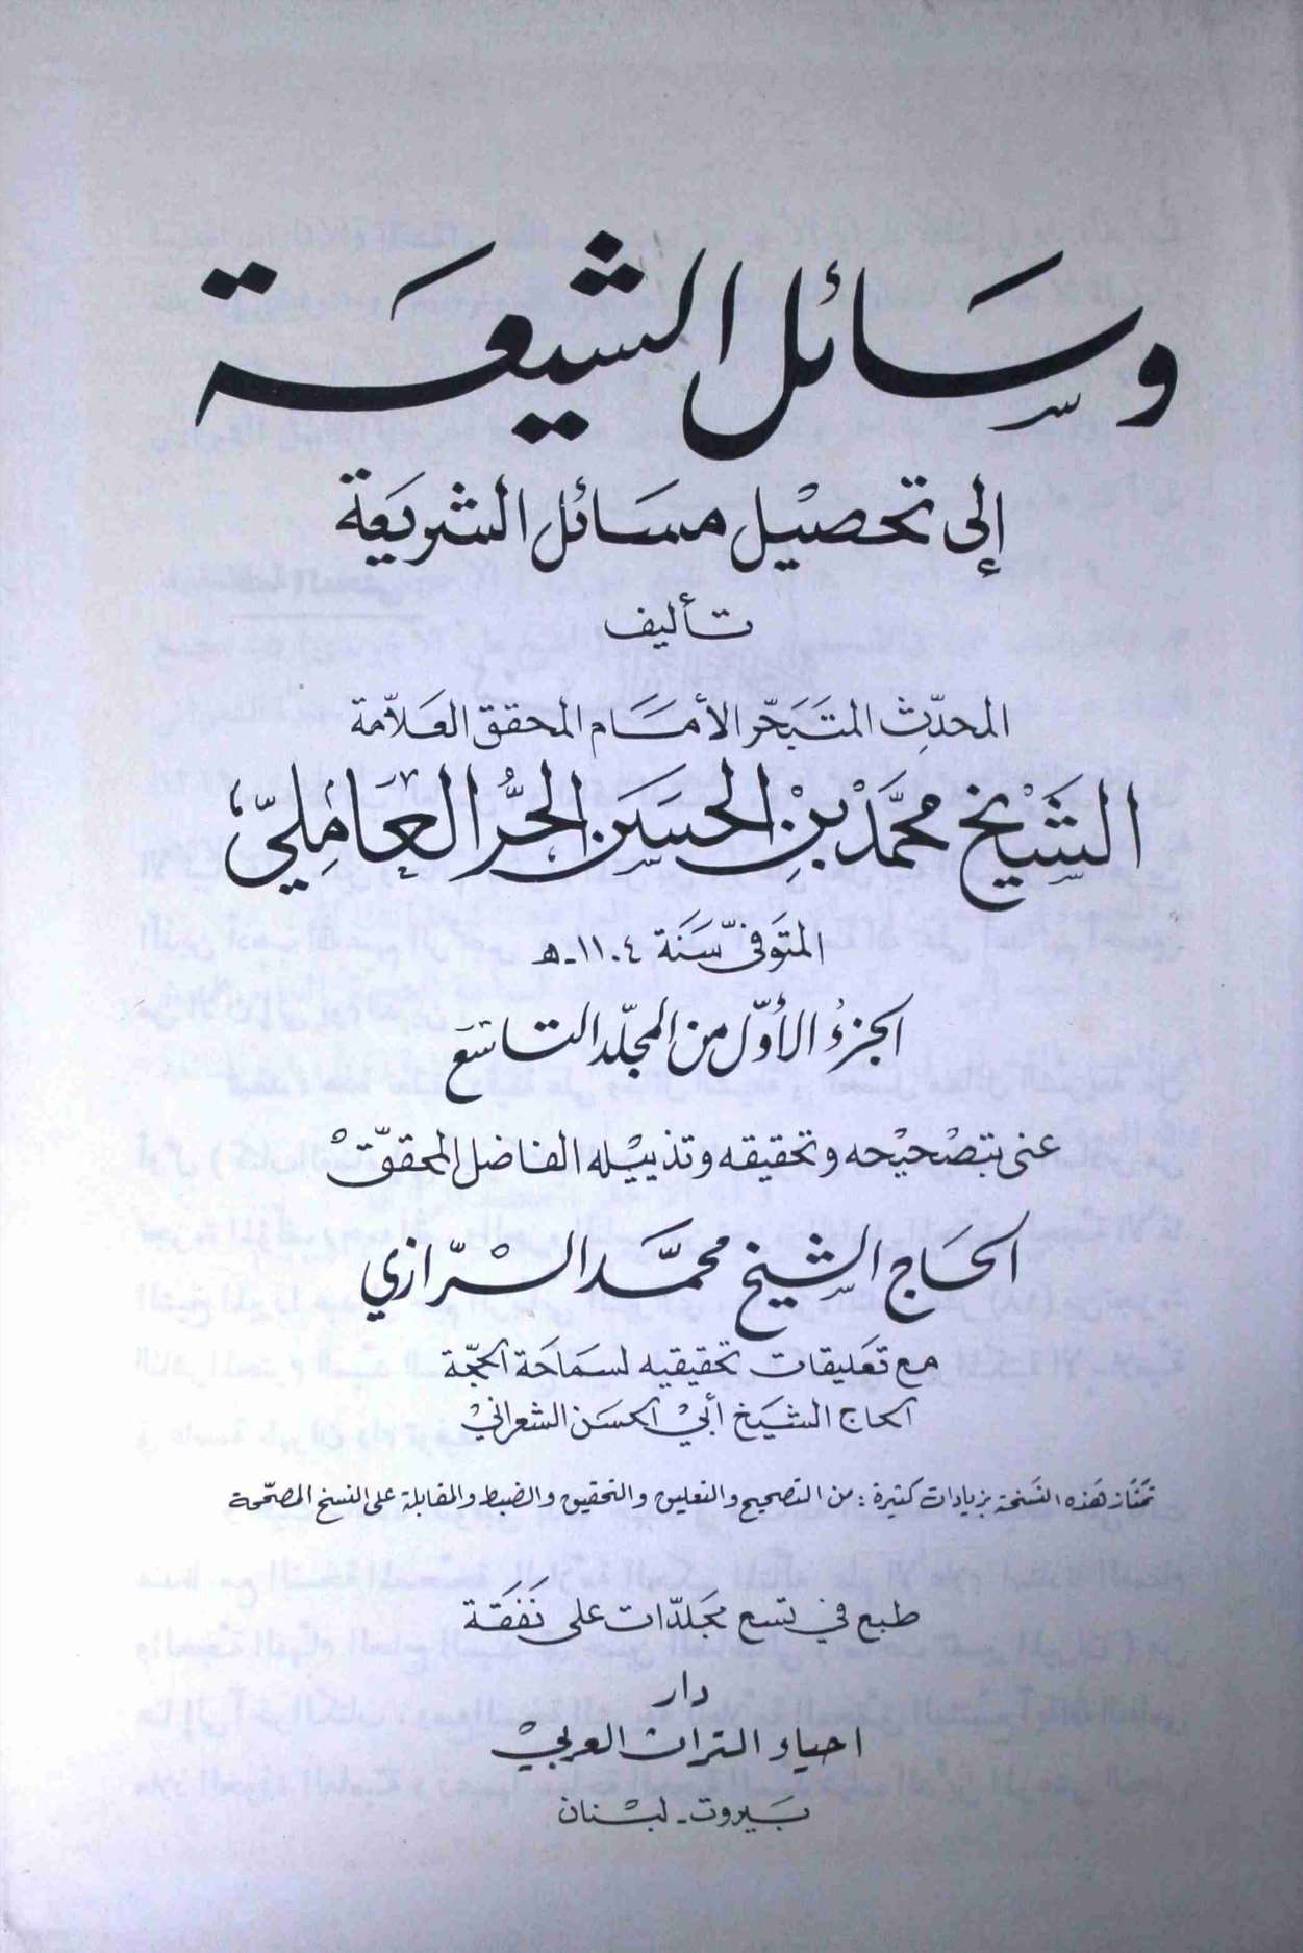 وسائل الشيعة
إلى تحصيل مسائل الشريعة
تأليف
المحدّث المتبحّر الأمام المحقق العلاّمة
الشيخ محمّد بن الحسن الحُرّ العاملي
المتوفّى سنة ١١٠٤ هـ
الجزء الأوّل من المجلّد التاسع
عنى بتصحيحه وتحقيقه وتذييله الفاضل المحقّق
الحاج الشيخ محمّد الرّازي
مع تعليقات تحقيقيه لسماحة الحجّة
الحاج الشيخ أبي الحسن الشعراني
تمتاز هذه النسخة بزيادات كثيرة : من التصحيح والتعليق والتحقيق والضبط والمقابلة على النسخ المصحّحة
طبع في تسع مجلدّات على نفقة
دار
احياء التراث العربي
بيروت - لبنان